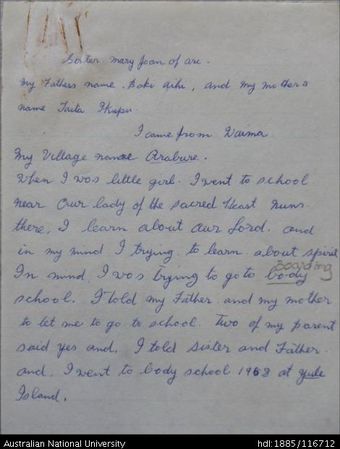 Sister mary Joan of arc.
My Fathers name Boko Aihi, and my mothers
name Taita Ikupu
I came from Waima
My Village name Arabure.
When I was little girl. I went to school
near Our lady of the sacred Heast Nuns.
there, I learn about Our Lord. and
in my mind I trying to learn about spirit
boarding
In mind I was trying to go to body
school. I told my Father and my mother
to let me to go to school. Two of my parent
said yes and. I told Sister and Father.
and. I went to body school 1968 at Yule
Island.
Australian National University
hdl:1885/116712